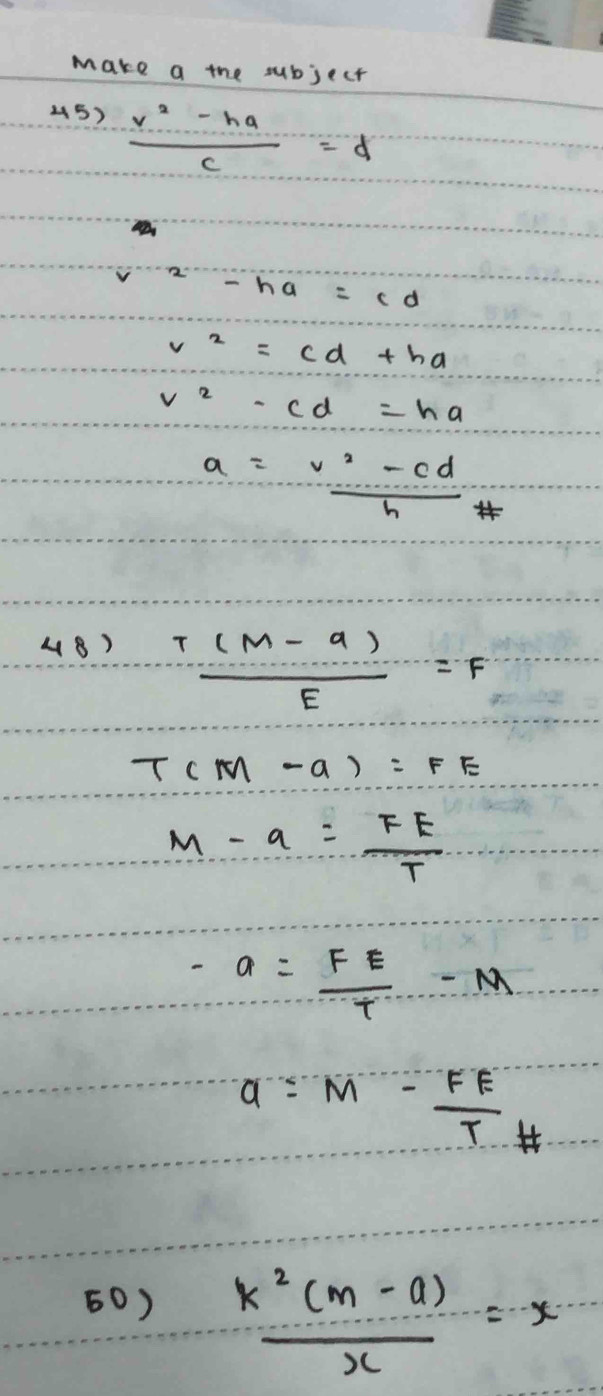 Make a the subject
45) v² - ha / c = d
v² - ha = cd
v² = cd + ha
v² - cd = ha
a = v² - cd / h #
48) T(M - a) / E = F
T(M - a) = FE
M - a = FE / T
- a = FE / T - M
a = M - FE / T #
50) k²(m - a) / x = x